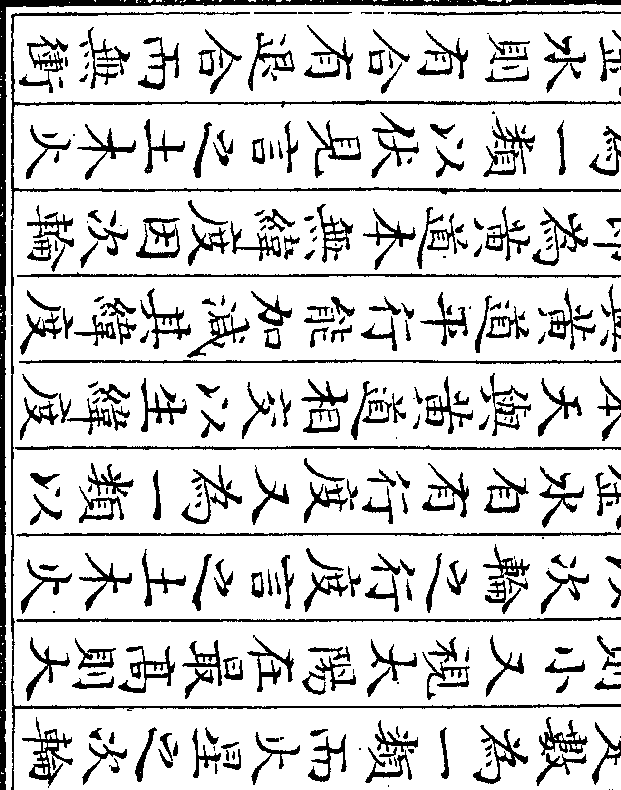 定數為一類而火星之次輪
則小又視太陽在最高則大
以次輪之行度言之土木火
金水自有行度又為一類以
本天與黃道相交以生緯度
與黃道平行能加減其緯度
即為黃道本無緯度因次輪
為一類以伏見言之土木火
金水則有合有退合而無衝